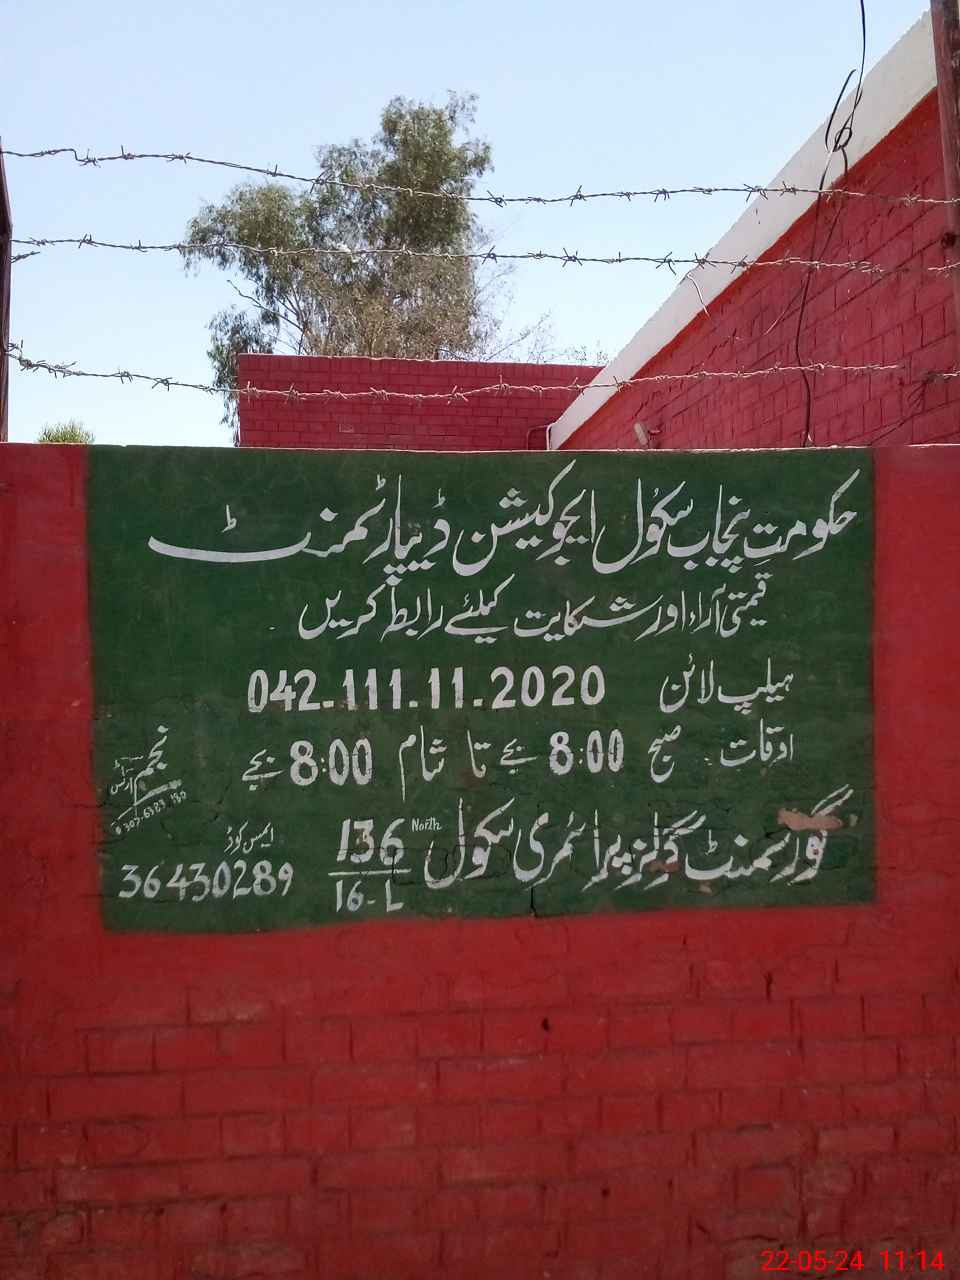 حکومتِ پنجاب سکُول ایجوکیشن ڈیپارٹمنٹ
قیمتی آراء اور شکایت کیلئے رابطہ کریں
ہیلپ لائن 042.111.11.2020
اوقات صبح 8:00 بجے تا شام 8:00 بجے
گورنمنٹ گرلز پرائمری سکول 136 North
16-L
ایمس کوڈ
36430289
نجم آرٹس
22-05-24 11:14